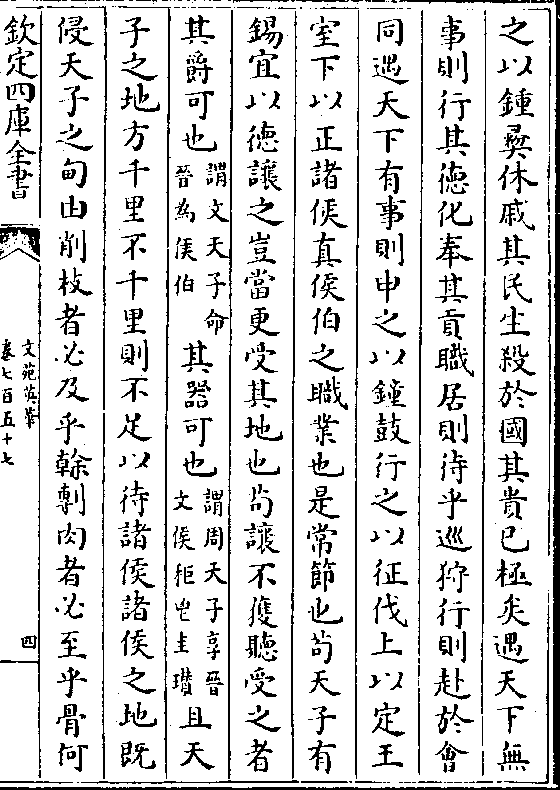 之以鍾彛休戚其民生殺於國其貴已極矣遇天下無
事則行其徳化奉其貢職居則待乎巡狩行則赴於會
同遇天下有事則申之以鐘鼓行之以征伐上以定王
室下以正諸侯真侯伯之職業也是常節也茍天子有
錫宜以徳讓之豈當更受其地也茍讓不獲聽受之者
其爵可也謂文天子命晉為侯伯其器可也謂周天子享晉文侯秬鬯圭瓚且天
子之地方千里不千里則不足以待諸侯諸侯之地既
侵天子之甸由削枝者必及乎榦剸肉者必至乎骨何
欽定四庫全書
文苑英華
卷七百五十七
四